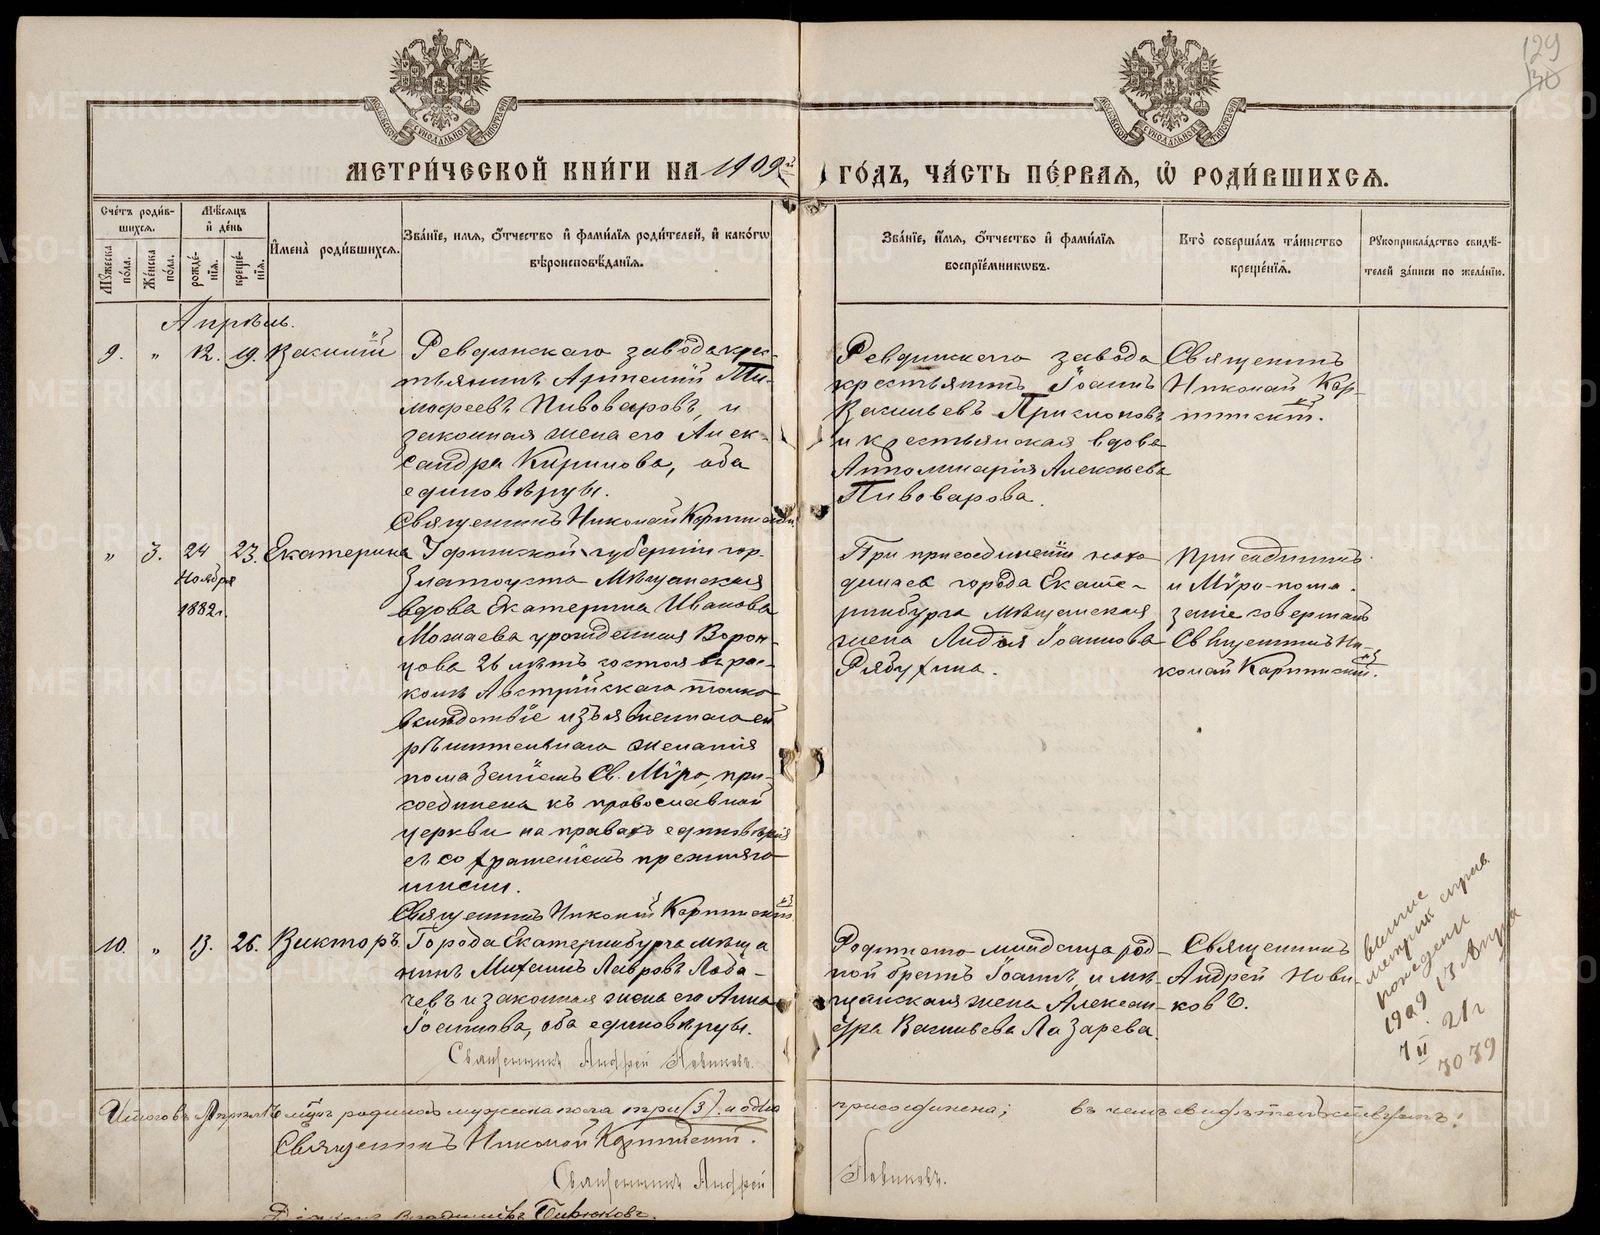 129
130
МЕТРИ́ЧЕСКОЙ КНИ́ГИ НА 1909й
ГО́ДЪ, ЧА́СТЬ ПЕ́РВАЯ, Ѡ҆ РОДИ́ВШИХСЯ.
Сче́тъ роди́в-
шихся.
Му́жеска по́ла.
Же́нска по́ла.
Мѣ́сяцъ
и҆ де́нь
рожде́-нїя.
креще́-нїя.
И҆мена̀ роди́вшихся.
Зва́нїе, и҆мя, ѻ҆́тчество и҆ фами́лїя роди́телей, и҆ како́гѡ
вѣроисповѣ́данїя.
Зва́нїе, и҆́мя, ѻ҆́тчество и҆ фами́лїя
воспрїе́мникѡвъ.
Кто̀ соверша́лъ та́инство
креще́нїя.
Рꙋкоприкла́дство свидѣ́-
телей за́писи по жела́нїю.
Апрѣль.
9. " 12. 19. Василій
Ревдинскаго завода крес-
тьянинъ Артемій Ти-
мофеевъ Пивоваровъ, и
законная жена его Алек-
сандра Кирилова, оба
единовѣрцы.
Священникъ Николай
Ревдинскаго завода
крестьянинъ Іоаннъ
Васильевъ
и крестьянская вдова
Апполинарія Алексѣева
Пивоварова.
Священникъ
Николай
" 3. 24 23. Екатерина
Ноября
1882г.
Уфимской губерніи гор.
Златоуста Мѣщанская
вдова Екатерина Иванова
Можаева урожденная Ворон-
цова 26 лѣтъ состоя въ рас-
колѣ Австрійскаго толка
вслѣдствіе изъявленнаго ей
рѣшительнаго желанія
помазаніемъ Св. Мѵро, при-
соединена къ православной
церкви на правахъ единовѣрія
съ сохраненіемъ прежняго
имени.
Священникъ Николай
При присоединеніи нахо
дилась города Екате-
ринбурга мѣщанская
жена Лидія Іоаннова
Рябухина.
Присоединилъ
и Мѵро-пома.
заніе совершалъ
Священникъ Ни-
колай
10. " 13. 26. Викторъ.
Города Екатеринбурга мѣща
нинъ Михаилъ Лавровъ Лоба-
чевъ и законная жена его Анна
Іоаннова, оба единовѣрцы.
Священникъ Андрей Новиковъ.
Роднаго младенца род-
ной братъ Іоаннъ, и мѣ-
щанская жена Алексан-
дра Васильева Лазарева.
Священникъ
Андрей Нови-
ковъ.
1909
21г
3039
Итого въ Апрѣлѣ м-цѣ родилось мужска пола три (3). и одна
присоединена; въ чемъ свидѣтельствуемъ:
Священникъ Николай
Священникъ Андрей
Новиковъ.
Діаконъ Бирюковъ.
METRIKI.GASO-URAL.RU